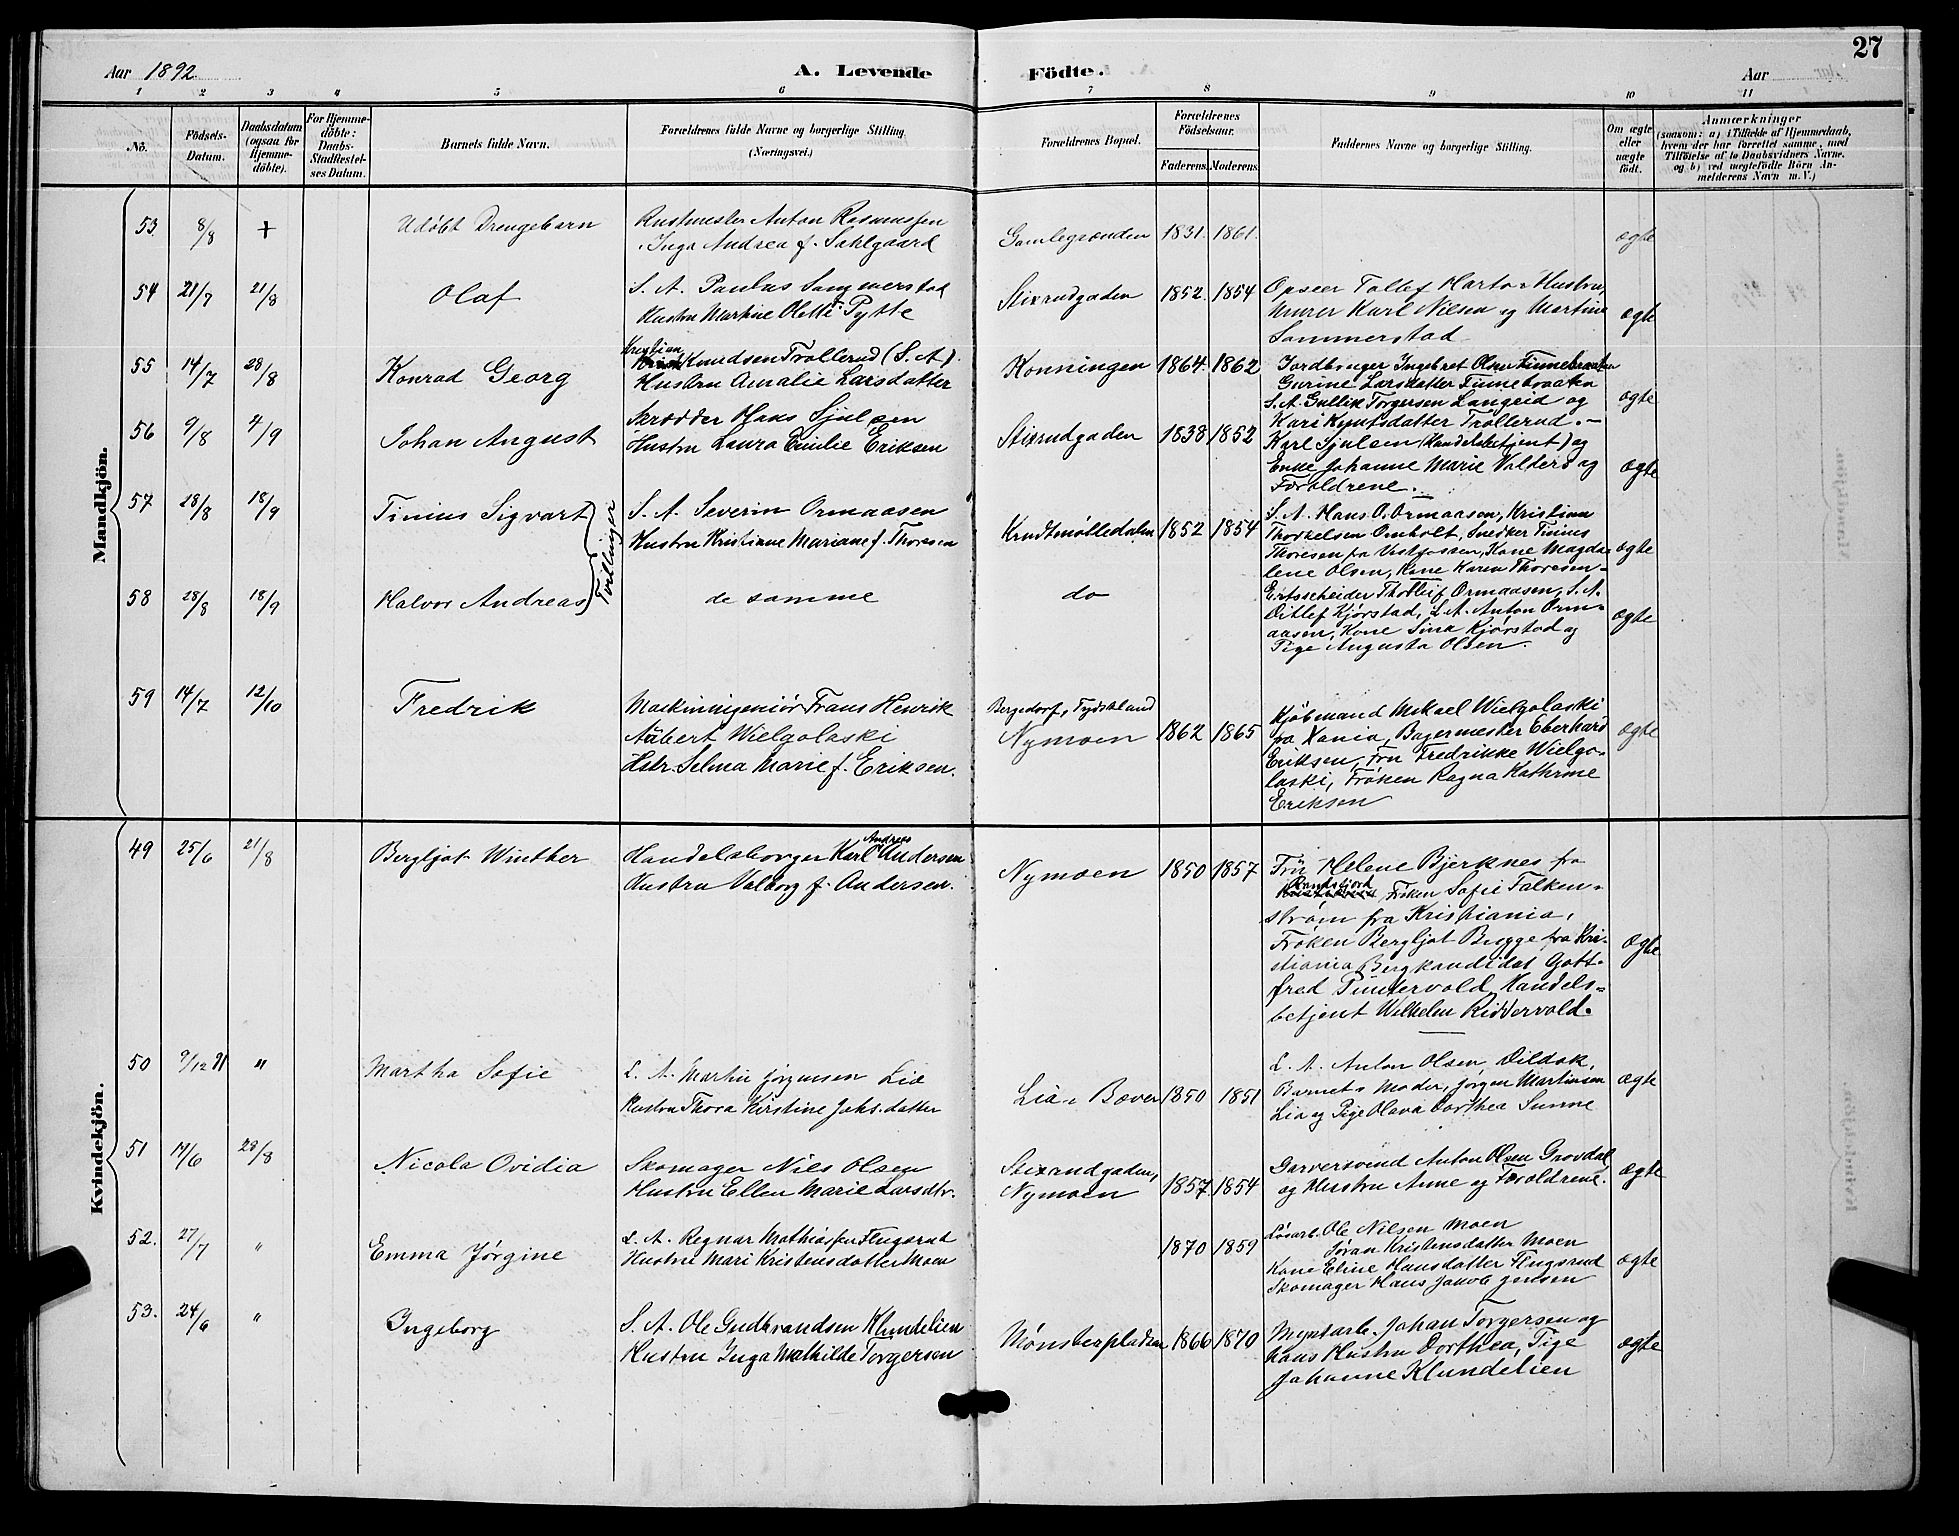 27
Aar 1892
A. Levende
Födte.
Aar
1 2 3 4 5 6 7 8 9 10 11
No.
Födsels-
Datum.
Daabsdatum
(ogsaa for
Hjemme-
döbte).
For Hjemme-
döbte:
Daabs-
Stadfæstel-
ses Datum.
Barnets fulde Navn.
Forældrenes fulde Navne og borgerlige Stilling
(Næringsvei.)
Forældrenes Bopæl.
Forældrenes
Födselsaar.
Faderens. Moderens.
Faddernes Navne og borgerlige Stilling.
Om ægte
eller
uægte
födt.
Anmærkninger
(saasom: a) i Tilfælde af Hjemmedaab,
hvem der har forrettet samme, med
Tilföielse af to Daabsvidners Navne.
og b) ved uægtefödte Börn An-
melderens Navn m. V.)
Mandkjön.
53 8/8 + Udøbt Drengebarn
Rustmester Anton Rasmussen
Inga Andrea f. Sahlgaard
Gamlegrænden 1831. 1861.
ægte
54 21/7 21/8 Olaf
S. A. Paulus Sangnerstad
Hustru Martine Olette Pytte
Stixrudgaden 1852. 1854
Opseer Tollef Hartor Hustru
Murer Karl Nilsen og Martine
Sommerstad
ægte
55 14/7 28/8 Konrad Georg
Kristian
Knudsen Trollerud (S. A.).
Hustru Auralie Larsdatter
Konningen 1864. 1862
Jordbruger Ingebret Olsen Finnebraaten
Gurine Larsdatter Finnebraaten
S. A. Gullik Torgersen Langeid og
Kari Knutsdatter Trollerud.
ægte
56 9/8 4/9 Johan August
Skrædder Hans Sjulsen
Hustru Laura Emilie Eriksen
Stixrudgaden 1838 1852
Karl Sjulsen (Handelsbetjent) og
Enke Johanne Marie Valders og
Forældrene.
ægte
57 28/8 18/9 Tinius Sigvart
Tvillinger
S. A. Severin Ormaasen
Hustru Kristiane Mariane f. Thoresen
Krudtmølledalen 1852 1854
S. A. Hans O. Ormaasen, Kristian
Thorkelsen Omholt, Snedker Tinius
Thoresen fra Vestfossen, Kone Magda-
lene Olsen, Kone Karen Thoresen
ægte
58 28/8 18/9 Halvor Andreas
de samme
do
Ertsscheider Thorleif Ormaasen, S. A.
Ditlef Kjørstad, S. A. Anton Orm-
aasen, Kone Sina Kjørstad og
Pige Augusta Olsen.
ægte
59 14/7 12/10 Fredrik
Maskiningeniör Frans Henrik
Aubert Wielgolaski
Hstr. Selma Marie f. Eriksen.
Bergedorf, Tydskland
Nymoen 1862 1865
Kjöbmand Mikael Wielgolaski
fra Xania, Bagermester Eberhard
Eriksen, Fru Fredrikke Wielgo-
laski, Fröken Ragna Kathrine
Eriksen
ægte
Kvindekjön.
49 25/6 21/8 Bergljot Winther
Andreas
Handelsborger Karl Andersen
Hustru Valborg f. Andersen.
Nymoen 1850 1857
Frü Helene Bjerknes fra
Randsfjord
Fröken Sofie Falken-
ström fra Kristiania,
Fröken Bergljot Bugge fra Kri-
stiania Bergkandidat Gott-
fred Püntervold, Handels-
betjent Wilhelm Riddervold.
ægte
50 9/12 91 " Martha Sofie
L. A. Martin Jörgensen Lia
Hustru Thora Kirstine Johs.datter
Lia, Bæver 1850 1851
L. A. Anton Olsen Dildak,
Barnets Moder, Jörgen Martinsen
Lia og Pige Olava Dorthea Sunne
ægte
51 14/6 28/8 Nicola Ovidia
Skomager Nils Olsen
Hustru Ellen Marie Larsdtr.
Stixrudgaden,
Nymoen 1857. 1854
Garversvend Anton Olsen Grovdal
og Hustru Anne og Forældrene.
ægte
52. 27/7 " Emma Jørgine
L. A. Regnar Mathiassen Flugsrud
Hustru Mari Kristensdatter Moen
1870 1859
Løsarb. Ole Nilsen Moen
Jøran Kristensdatter Moen
Kone Eline Hansdatter Flugsrud
Skomager Hans Jakob Jensen
ægte
53. 24/6 " Ingeborg
S. A. Ole Gudbrandsen Klundelien
Hustru Inga Mathilde Torgersen
Mønsterpladsen 1866 1870
Myntarb. Johan Torgersen og
hans Hustru Dorthea, Pige
Johanne Klundelien
ægte